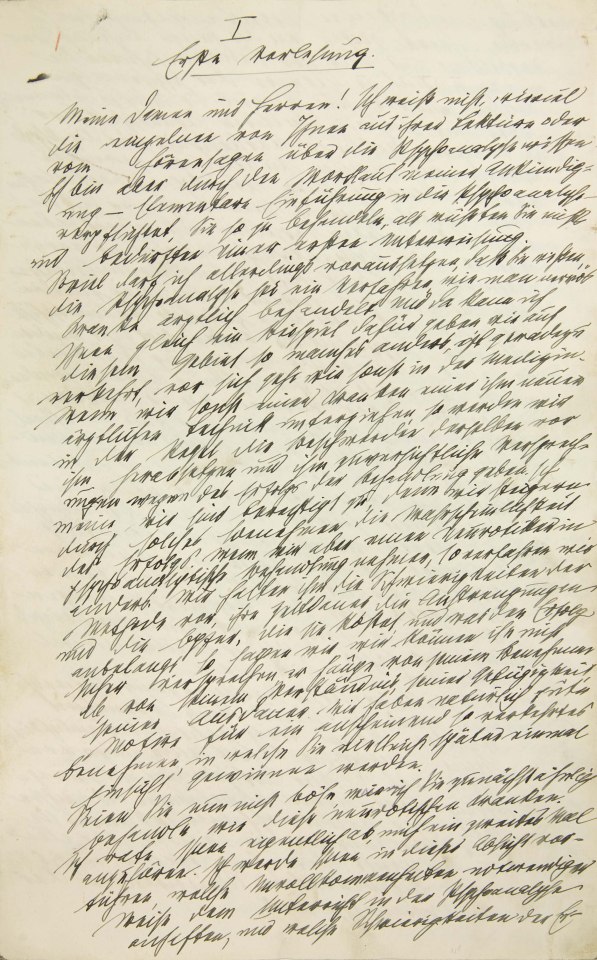 I
Erste Vorlesung.
Meine Damen und Herren! Ich weiß nicht, wieviel
die einzelnen von Ihnen aus ihrer Lektüre oder
vom Hörensagen über die Psychoanalyse wissen.
Ich bin aber durch den Wortlaut meiner Ankündig-
ung – Elementare Einführung in die Psychoanalyse –
verpflichtet, Sie so zu behandeln, als wüßten Sie nichts
und bedürften einer ersten Unterweisung.
Soviel darf ich allerdings voraussetzen, daß Sie wissen,
die Psychoanalyse sei ein Verfahren, wie man nervös
Kranke ärztlich behandelt, und da kann ich
Ihnen gleich ein Beispiel dafür geben, wie auf
diesem Gebiet so manches anders, oft geradezu
verkehrt, vor sich geht wie sonst in der Medizin.
Wenn wir sonst einen Kranken einer ihm neuen
ärztlichen Technik unterziehen, so werden wir
in der Regel die Beschwerden derselben vor
ihm herabsetzen und ihm zuversichtliche Versprech-
ungen wegen des Erfolgs der Behandlung geben. Ich
meine, wir sind berechtigt dazu, denn wir steigern
durch solches Benehmen die Wahrscheinlichkeit
des Erfolgs. Wenn wir aber einen Neurotiker in
psychoanalytische Behandlung nehmen, so verfahren wir
anders. Wir halten ihm die Schwierigkeiten der
Methode vor, ihre Zeitdauer, die Anstrengungen
und die Opfer, die sie kostet, und was den Erfolg
anbelangt, so sagen wir, wir können ihn nicht
sicher versprechen, er hänge von seinem Benehmen
ab, von seinem Verständnis, seiner Gefügigkeit,
seiner Ausdauer. Wir haben natürlich gute
Motive für ein anscheinend so verkehrtes
Benehmen, in welche Sie vielleicht später einmal
Einsicht gewinnen werden.
Seien Sie nun nicht böse, wenn ich Sie zunächst ähnlich
behandle wie diese neurotischen Kranken.
Ich rate Ihnen eigentlich ab, mich ein zweites Mal
anzuhören. Ich werde Ihnen in dieser Absicht vor-
führen, welche Unvollkommenheiten notwendiger
Weise dem Unterricht in der Psychoanalyse
anhaften, und welche Schwierigkeiten der Er-